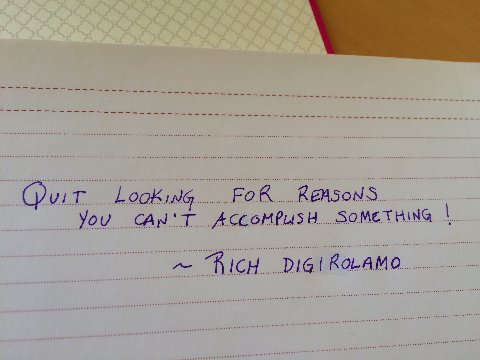 Quit looking for reasons
you can't accomplish something!
~ Rich DiGirolamo